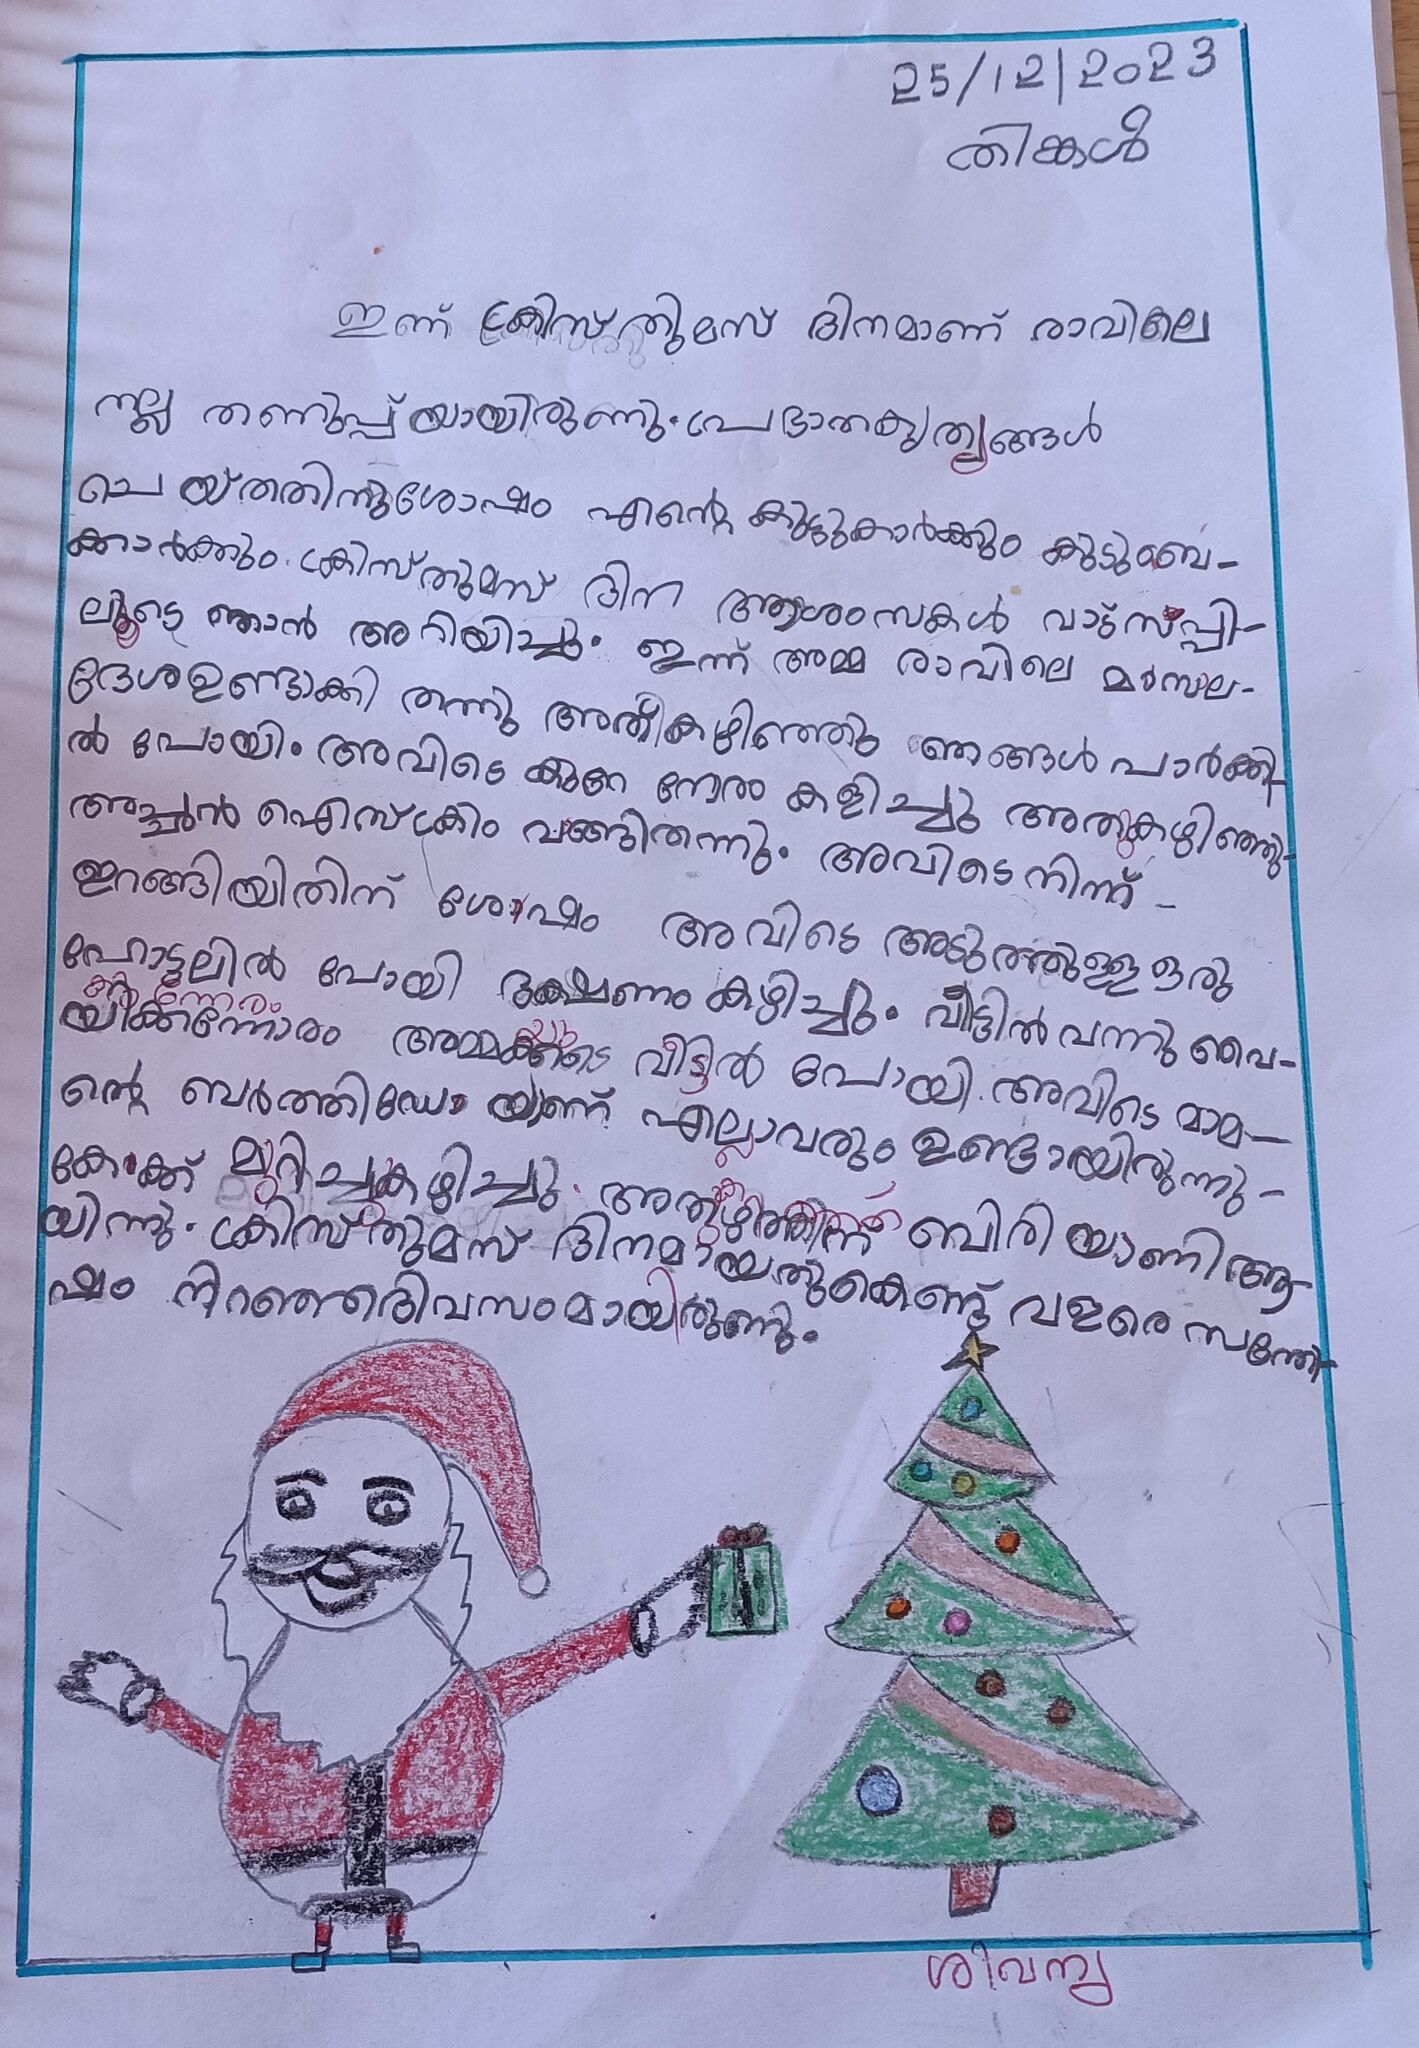 25/12/2023
തിങ്കൾ
ഇന്ന് ക്രിസ്തുമസ് ദിനമാണ് രാവിലെ
നല്ല തണുപ്പ്യായിരുണു. പ്രഭാതകൃത്യങ്ങൾ
ചെയ്തതിനുശേഷം എന്റെ കൂട്ടുകാർക്കും കുടുംബ-
ക്കാർക്കും ക്രിസ്തുമസ് ദിന ആശംസകൾ വാട്സപ്പി-
ലൂടെ ഞാൻ അറിയിച്ചു. ഇന്ന് അമ്മ രാവിലെ മസാല-
ദോശഉണ്ടാക്കി തന്നു അത്കഴിഞ്ഞു ഞങ്ങൾ പാർക്കി-
ൽ പോയി. അവിടെ കുറേ നേരം കളിച്ചു അതുകഴിഞ്ഞു-
അച്ഛൻ ഐസ്ക്രീം വങ്ങിതന്നു. അവിടെനിന്ന് -
ഇറങ്ങിയിതിന് ശേഷം അവിടെ അടുത്തുള്ള ഒരു
ഹോട്ടലിൽ പോയി ഭക്ഷണം കഴിച്ചു. വീട്ടിൽ വന്നു വൈ-
യിക്കന്നേരം അമ്മക്കുടെ വീട്ടിൽ പോയി. അവിടെ മാമ-
ന്റെ ബർത്തിഡേ യാണ് എല്ലാവരും ഉണ്ടായിരുന്നു -
കേക്ക് മുറിച്ചുകഴിച്ചു. ബിരിയാണി ആ-
യിന്നു. ക്രിസ്തുമസ് ദിനമായതുകെണ്ട് വളരെ സന്തേ-
ഷം നിറഞ്ഞദിവസംമായിരുണു.
ശിവന്യ